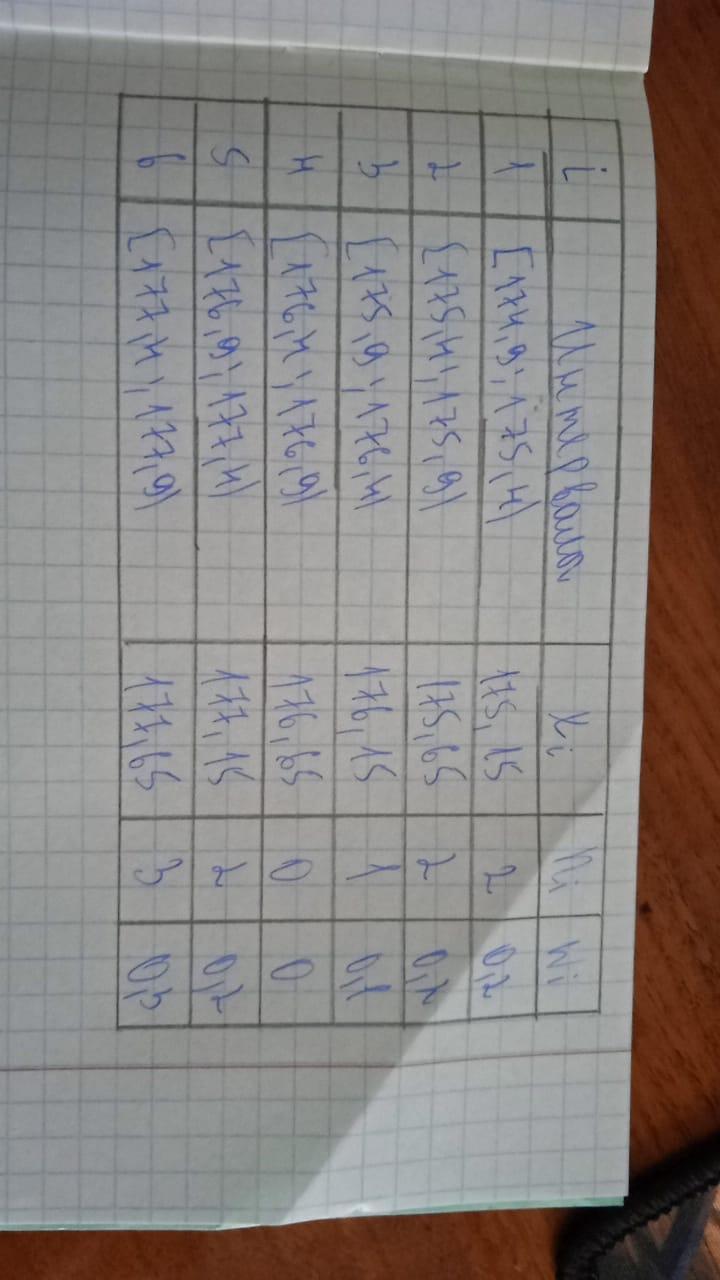 i Интервалы xi ni wi
1 [174,9; 175,4) 175,15 2 0,2
2 [175,4; 175,9) 175,65 2 0,2
3 [175,9; 176,4) 176,15 1 0,1
4 [176,4; 176,9) 176,65 0 0
5 [176,9; 177,4) 177,15 2 0,2
6 [177,4; 177,9) 177,65 3 0,3